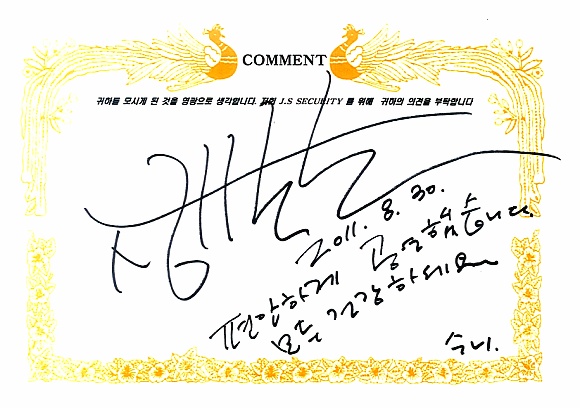 COMMENT
귀하를 모시게 된 것을 영광으로 생각합니다. 저희 J.S SECURITY 를 위해 귀하의 의견을 부탁합니다
2011. 8. 30.
편안하게 공연했습니다.
모두 건강하세요
수니.